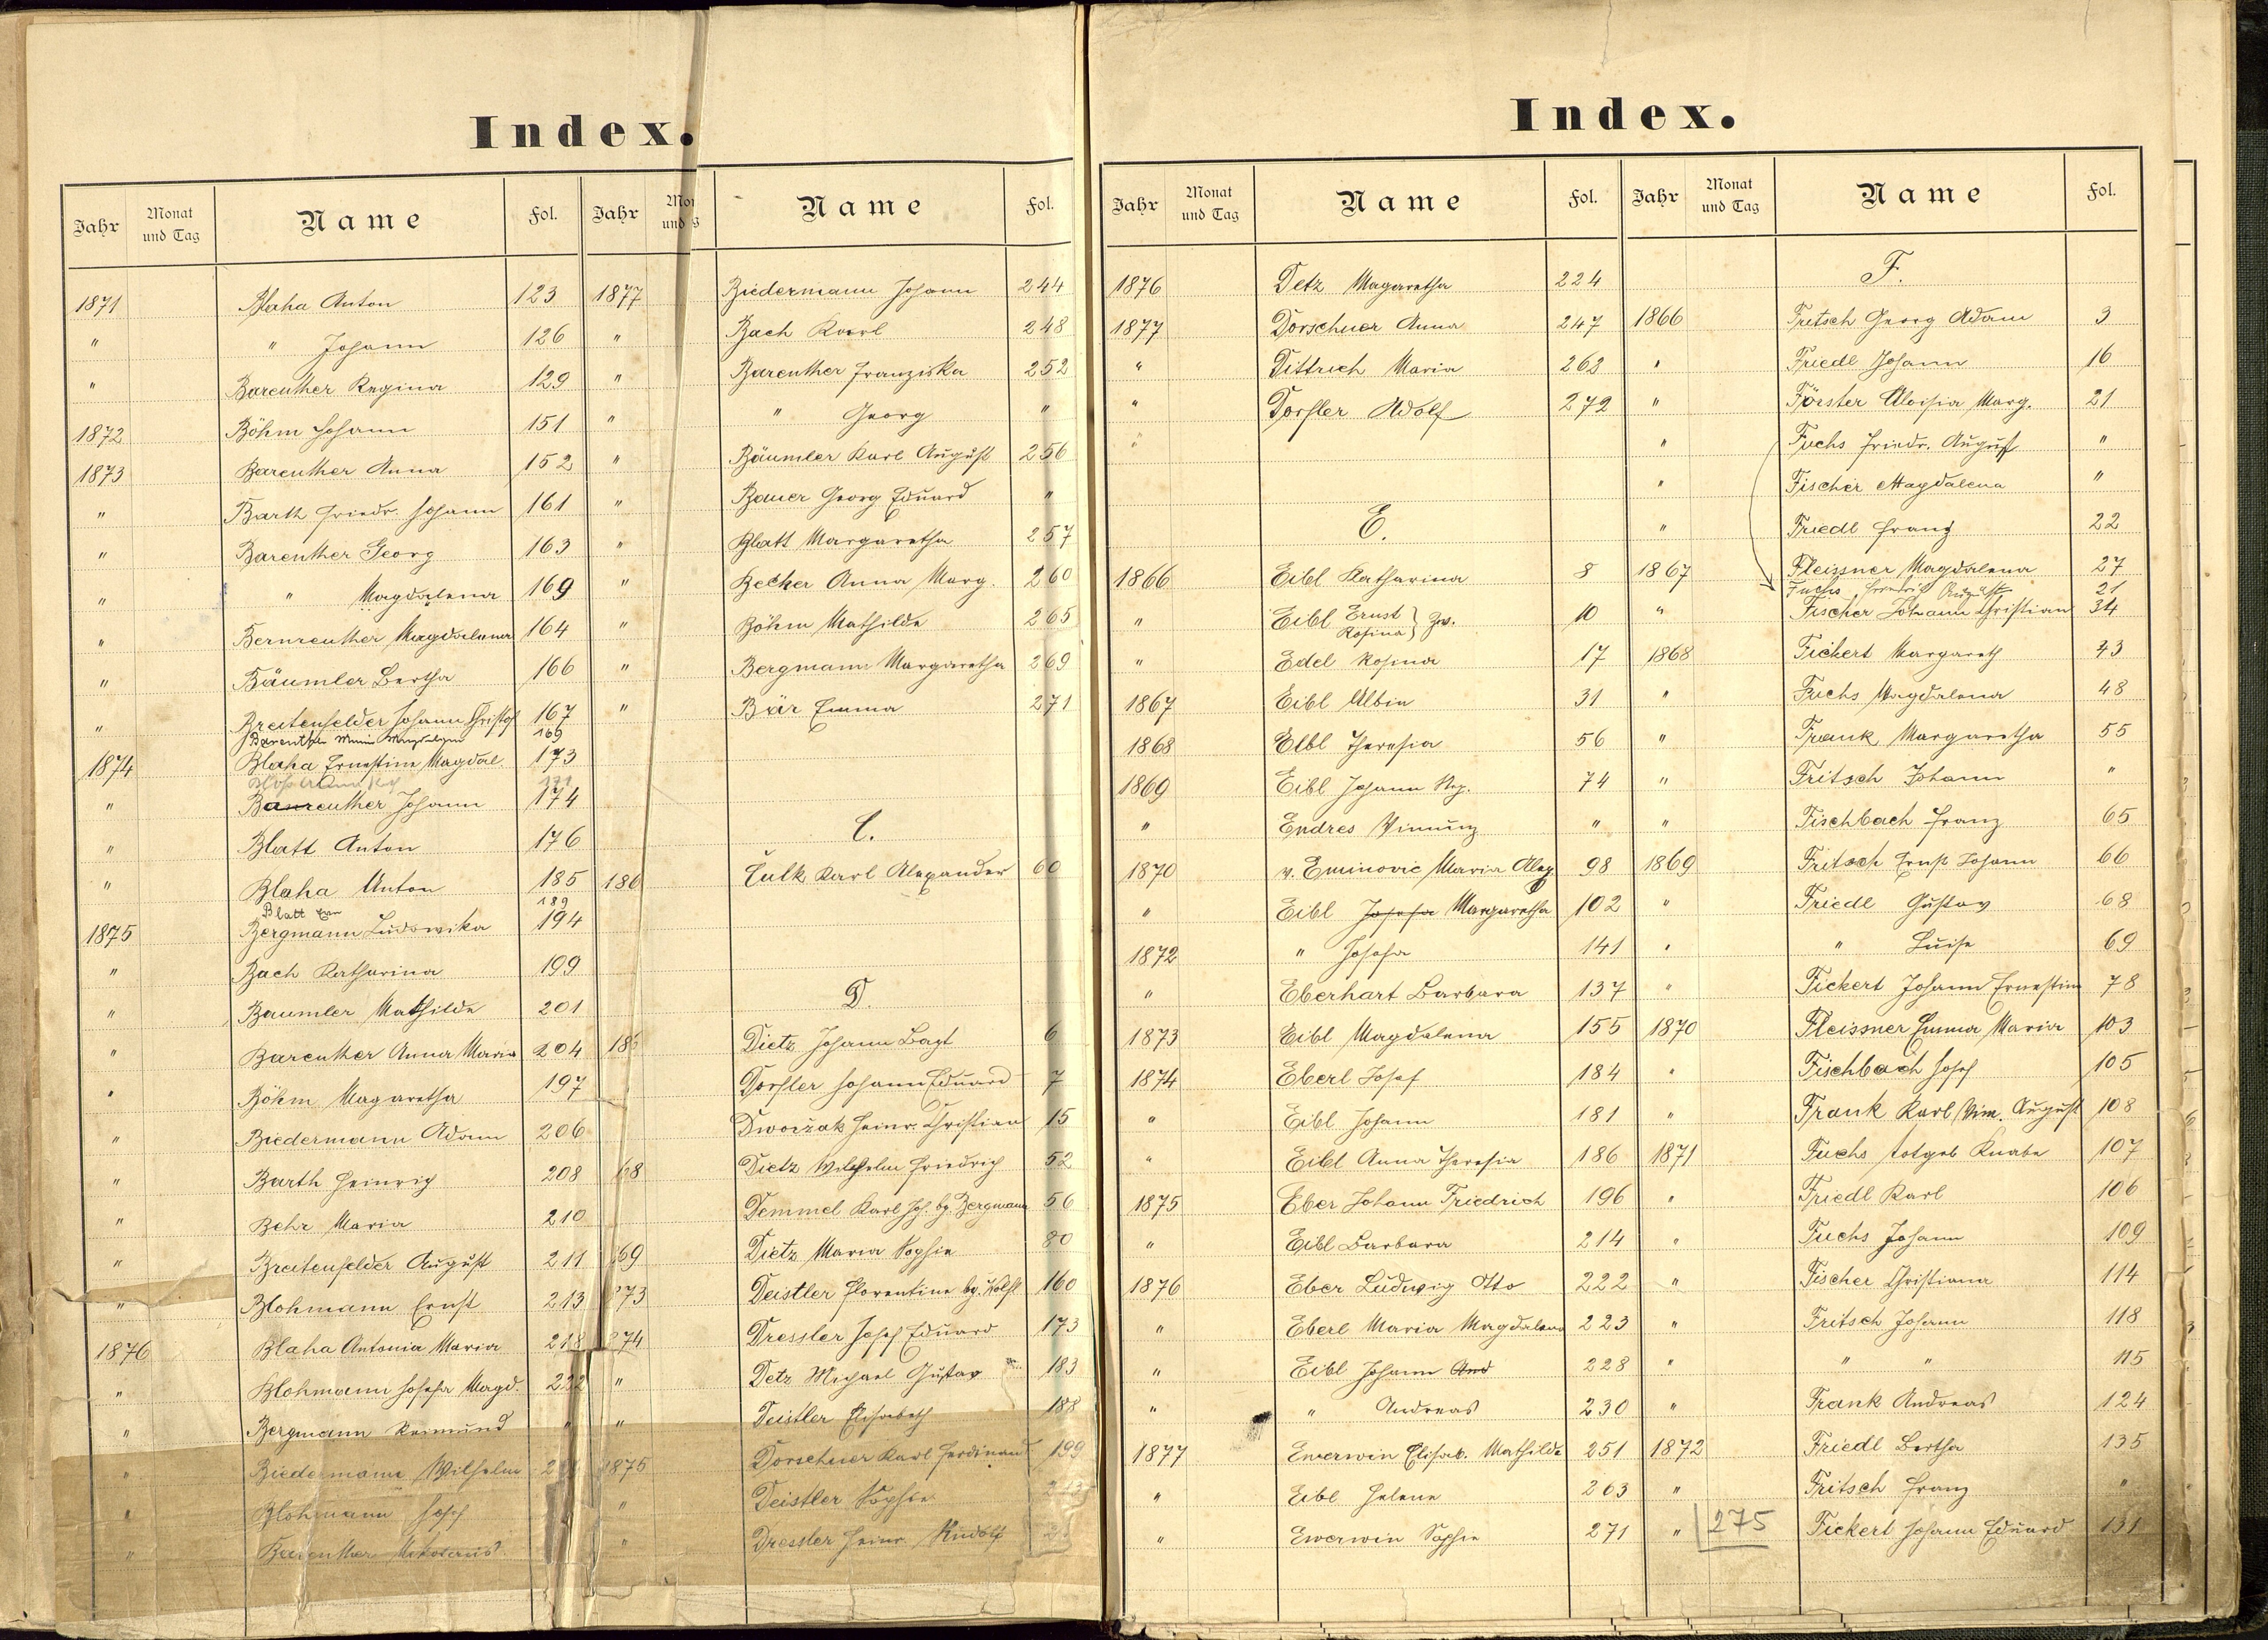 Index.
Jahr Monat und Tag Name Fol. Jahr Name Fol.
1871 Blaha Anton 123
" " Johann 126
" Bareuther Regina 129
1872 Böhm Johann 151
1873 Bareuther Anna 152
" Barth Friedr. Johann 161
" Bareuther Georg 163
" " Magdalena 169
" Bernreuther Magdalena 164
" Bäumler Bertha 166
" Breitenfelder Johann Christof 167
Bareuther Magdalena 169
1874 Blaha Ernestine Magdal. 173
171
" Bareuther Johann 174
" Blatt Anton 176
" Blaha Anton 185
Blatt 189
1875 Bergmann Ludowika 194
" Bach Katharina 199
" Baumler Mathilde 201
" Bareuther Anna Maria 204
" Böhm Magaretha 197
" Biedermann Adam 206
" Barth Heinrich 208
" Behr Maria 210
" Breitenfelder August 211
" Blohmann Ernst 213
1876 Blaha Antonia Maria 218
" Blohmann Josefa Magd. 222
" Bergmann Raimund "
" Biedermann Wilhelm
" Blohmann Josef
" Bareuther Nikolaus
1877 Biedermann Johann 244
" Bach Karl 248
" Bareuther Franziska 252
" " Georg "
" Bäumler Karl August 256
" Bauer Georg Eduard "
" Blatt Margaretha 257
" Becher Anna Marg. 260
" Böhm Mathilde 265
" Bergmann Margaretha 269
" Bär Emma 271
C.
186 Čulk Karl Alexander 60
D.
186 Dietz Johann Bapt 6
Dorfler Johann Eduard 7
Dworzak Heinr. Christian 15
68 Dietz Wilhelm Friedrich 52
Demmel Karl Joh. bg. Bergmann 56
69 Dietz Maria Sophie 80
873 Deistler Florentine bg. Wolf 160
874 Dressler Josef Eduard 173
" Detz Michael Gustav 183
" Deistler Elisabeth 188
1875 Dorschner Karl Ferdinand 199
" Deistler Sophie 213
" Dressler Heinr. Rudolf
Index.
Jahr Monat und Tag Name Fol. Jahr Monat und Tag Name Fol.
1876 Detz Magaretha 224
1877 Dorschner Anna 247
" Dittrich Maria 262
" Dorfler Adolf 272
"
E.
1866 Eibl Katharina 8
" Eibl Ernst Rosina } Zw. 10
" Edel Rosina 17
1867 Eibl Albin 31
1868 Elbl Theresia 56
1869 Eibl Johann Nep. 74
" Endres Vinzenz "
1870 v. Eminovic Maria Alex. 98
" Eibl Josefa Margaretha 102
1872 " Josefa 141
" Eberhart Barbara 137
1873 Eibl Magdalena 155
1874 Eberl Josef 184
" Eibl Johann 181
" Eibl Anna Theresia 186
1875 Eber Johann Friedrich 196
" Eibl Barbara 214
1876 Eber Ludwig Otto 222
" Eberl Maria Magdalena 223
" Eibl Johann And 228
" " Andreas 230
1877 Ewerwin Elisab. Mathilde 251
" Eibl Helene 263
" Ewerwin Sophie 271
F.
1866 Fritsch Georg Adam 3
" Friedl Johann 16
" Förster Aloisia Marg. 21
" Fuchs Friedr. August "
" Fischer Magdalena "
" Friedl Franz 22
1867 Fleissner Magdalena 27
Fuchs, Friedrich August 21
" Fischer Johann Christian 34
1868 Fickert Margareth 43
" Fuchs Magdalena 48
" Frank Margaretha 55
" Fritsch Johann "
" Fischbach Franz 65
1869 Fritsch Ernst Johann 66
" Friedl Gustav 68
" " Luise 69
" Fickert Johann Ernestine 78
1870 Fleissner Emma Maria 103
" Fischbach Josef 105
" Frank Karl Vinz. August 108
1871 Fuchs totgeb Knabe 107
" Friedl Karl 106
" Fuchs Johann 109
" Fischer Christiana 114
" Fritsch Johann 118
" " " 115
" Frank Andreas 124
1872 Friedl Bertha 135
" Fritsch Franz "
" 275 Fickert Johann Eduard 131